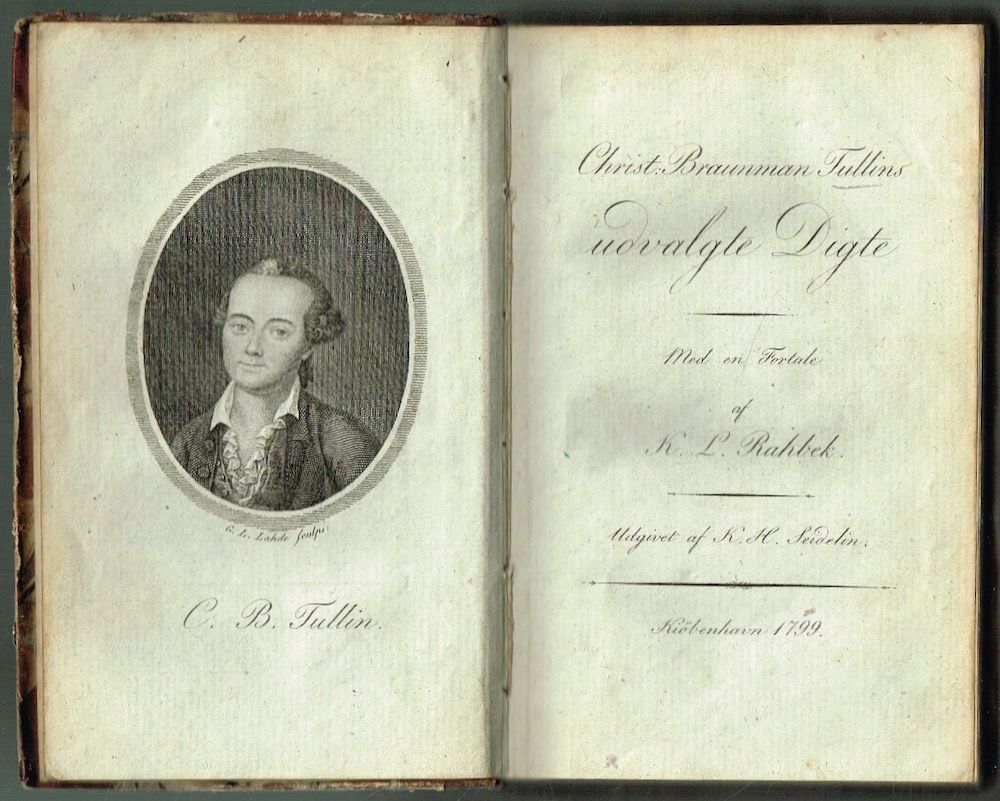 G. L. Lahde sculpsi
C. B. Tullin.
Christ: Braunman Tullins
udvalgte Digte
Med en Fortale
af
K. L. Rahbek.
Udgivet af K. H. Seidelin.
Kiöbenhavn 1799.